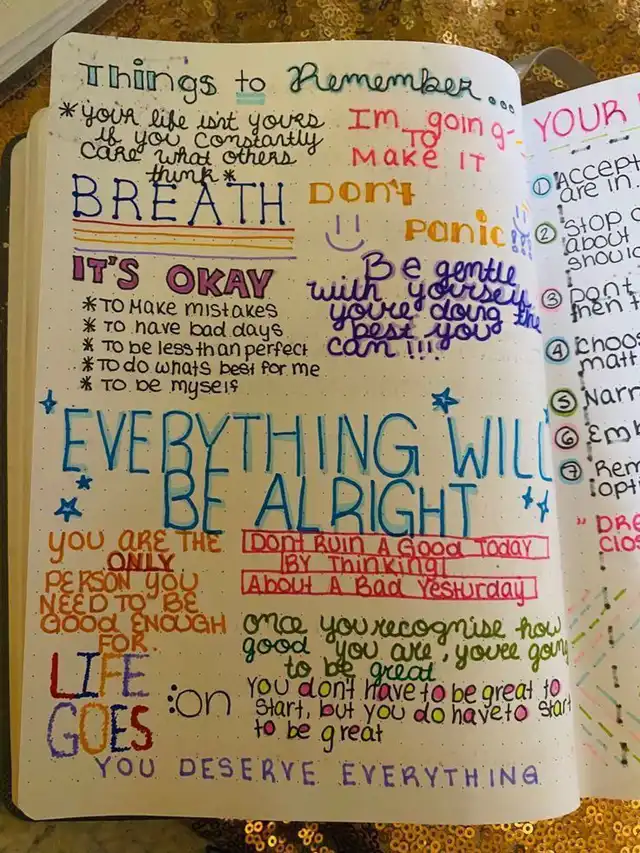 Things to Remember...
*your life isnt yours
if you constantly
care what others
think*
I'm going
TO
MAKE IT
BREATH
Don't
Panic
IT'S OKAY
*TO Make mistakes
* To have bad days
* To be less than perfect
*To do whats best for me
* To be myself
Be gentle
with yourself
you're doing the
best you
can!!!
EVERYTHING WILL
BE ALRIGHT
YOU ARE THE
ONLY
PERSON YOU
NEED TO BE
Good ENOUGH
FOR.
Dont Ruin A Good Today
By Thinking
About A Bad Yesturday
once you recognise how
good you are, you're going
to be great
LIFE
GOES
:on
You don't have to be great to
start, but you do have to start
to be great
YOU DESERVE EVERYTHING
YOUR
1 Accept
are in
2 Stop
about
should
3 Dont
then
4 Choos
matt
5 Narr
6 Emb
7 Rem
opti
"DRE
Clos